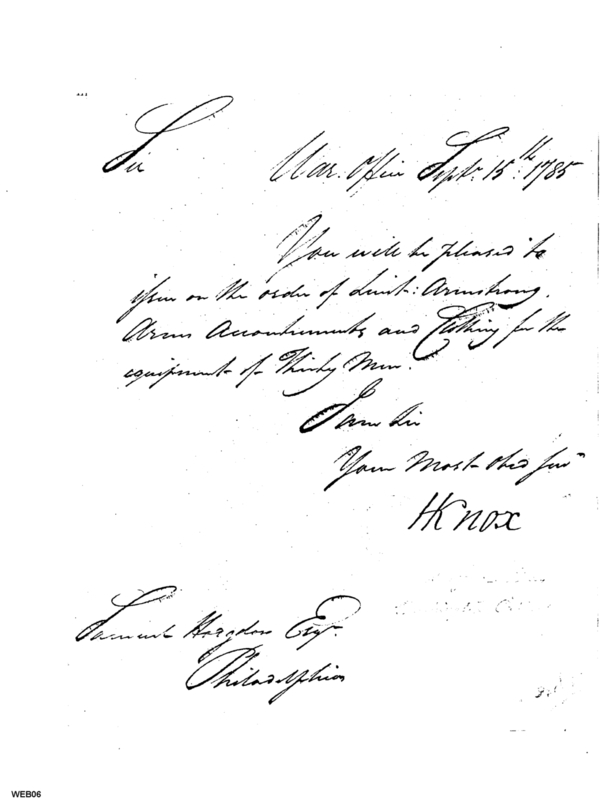 Sir
War Office Septr. 15th: 1785
You will be pleased to
issue on the order of Lieut: Armstrong,
Arms Accoutrements and Clothing for the
equipment of Thirty Men.
I am Sir
Your Most Obed Servt
HKnox
Samuel Hodgdon Esqr.
Philadelphia
WEB06